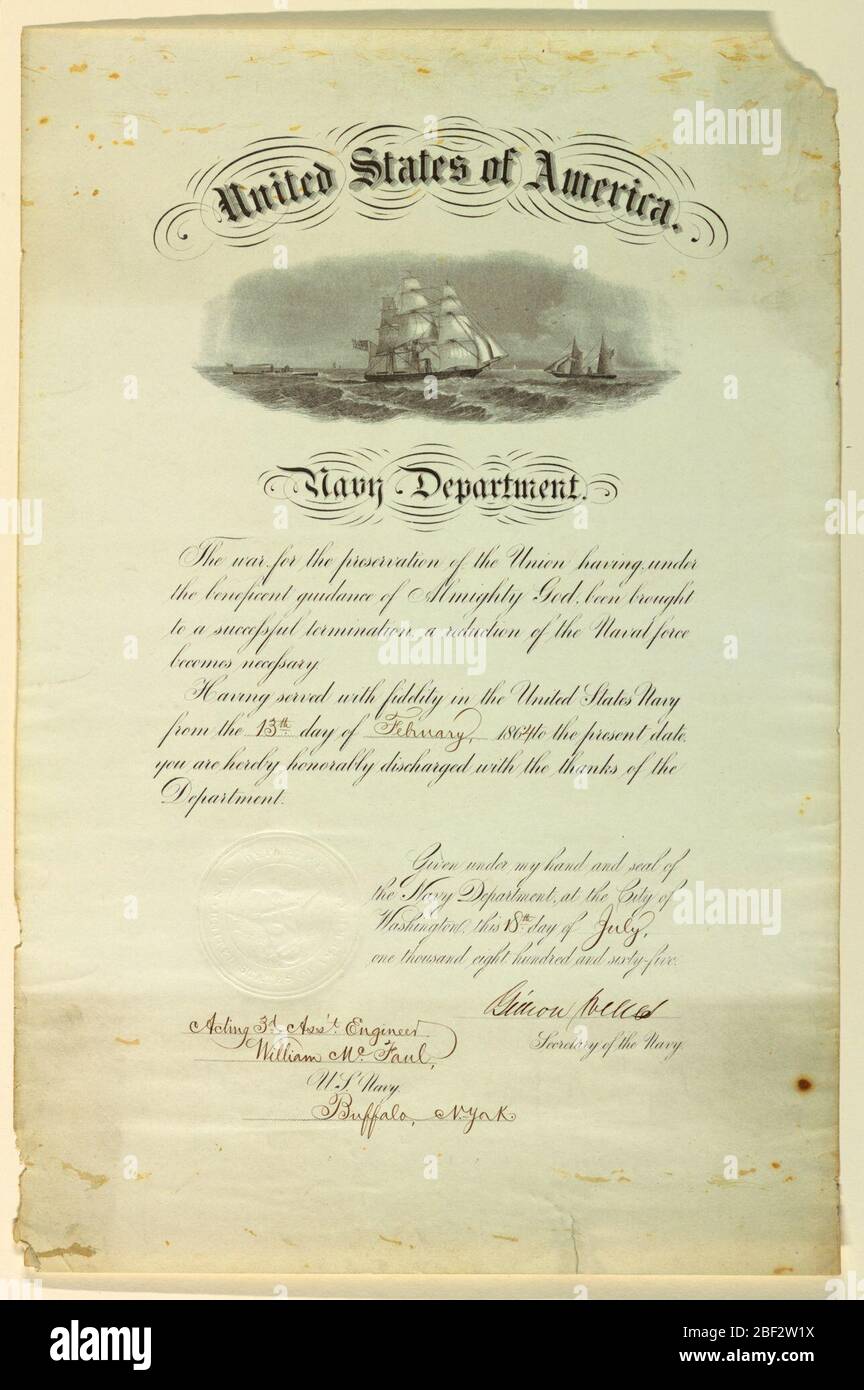 United States of America.
Navy Department.
The war for the preservation of the Union having, under
the beneficent guidance of Almighty God, been brought
to a successful termination, a reduction of the Naval force
becomes necessary.
Having served with fidelity in the United States Navy
from the 13th day of February, 1864 to the present date,
you are hereby honorably discharged with the thanks of the
Department.
Given under my hand and seal of
the Navy Department, at the City of
Washington, this 18th day of July,
one thousand eight hundred and sixty-five.
Gideon Welles
Secretary of the Navy.
Acting 3d Ass't Engineer
William Mc Faul,
U.S. Navy.
Buffalo, N. York
alamy
alamy
alamy
alamy
Image ID: 2BF2W1X
www.alamy.com